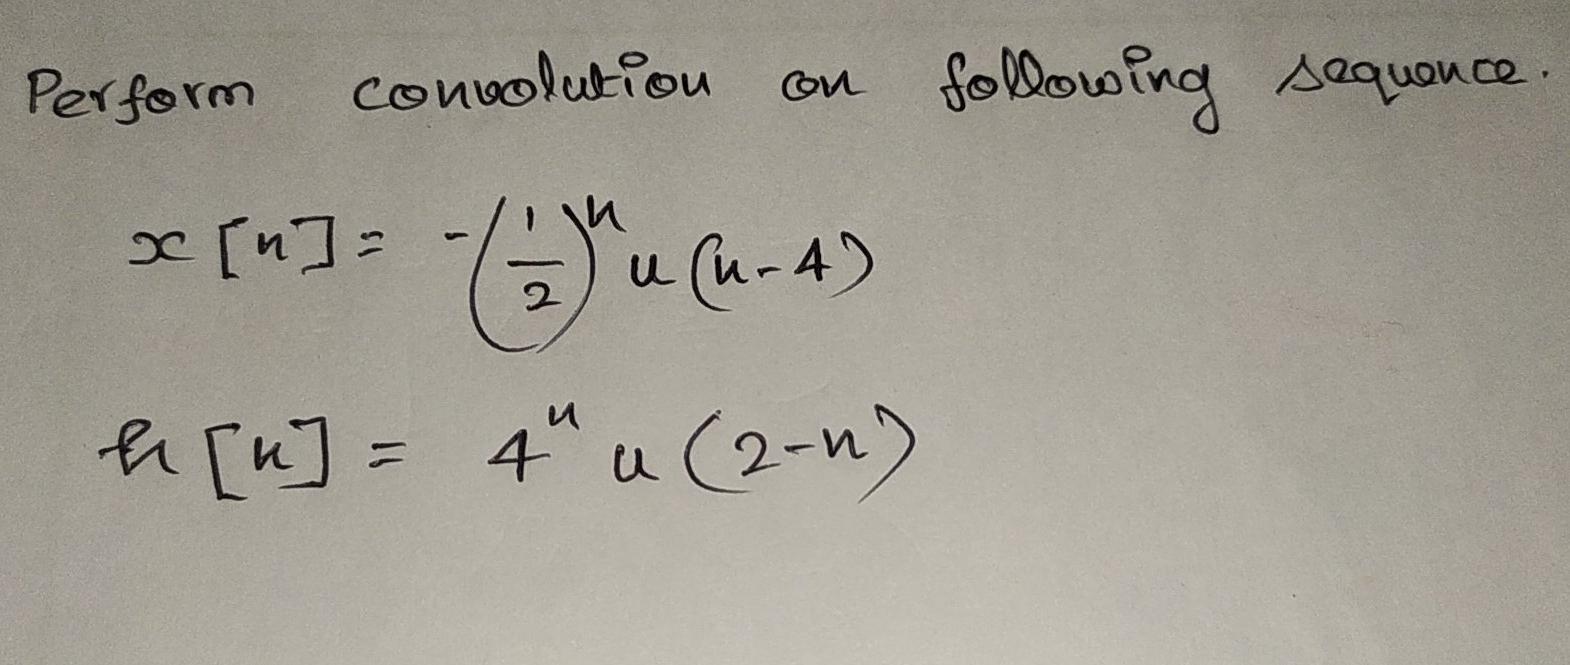 Perform convolution on following sequence.
x[n] = -(1/2)^n u(n-4)
h[n] = 4^n u(2-n)